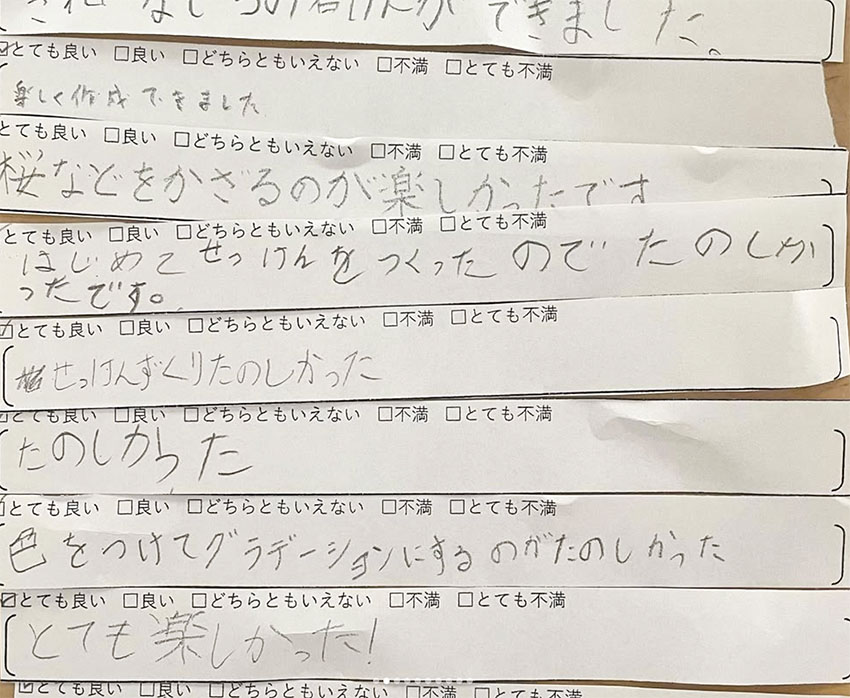 せっけんができました。
☑とても良い □良い □どちらともいえない □不満 □とても不満
楽しく作成できました
とても良い □良い □どちらともいえない □不満 □とても不満
桜などをかざるのが楽しかったです
とても良い □良い □どちらともいえない □不満 □とても不満
はじめてせっけんをつくったのでたのしか
ったです。
☑とても良い □良い □どちらともいえない □不満 □とても不満
せっけんずくりたのしかった
☑とても良い □良い □どちらともいえない □不満 □とても不満
たのしかった
☑とても良い □良い □どちらともいえない □不満 □とても不満
色をつけてグラデーションにするのがたのしかった
☑とても良い □良い □どちらともいえない □不満 □とても不満
とても楽しかった!
☑とても良い □良い □どちらともいえない □不満 □とても不満